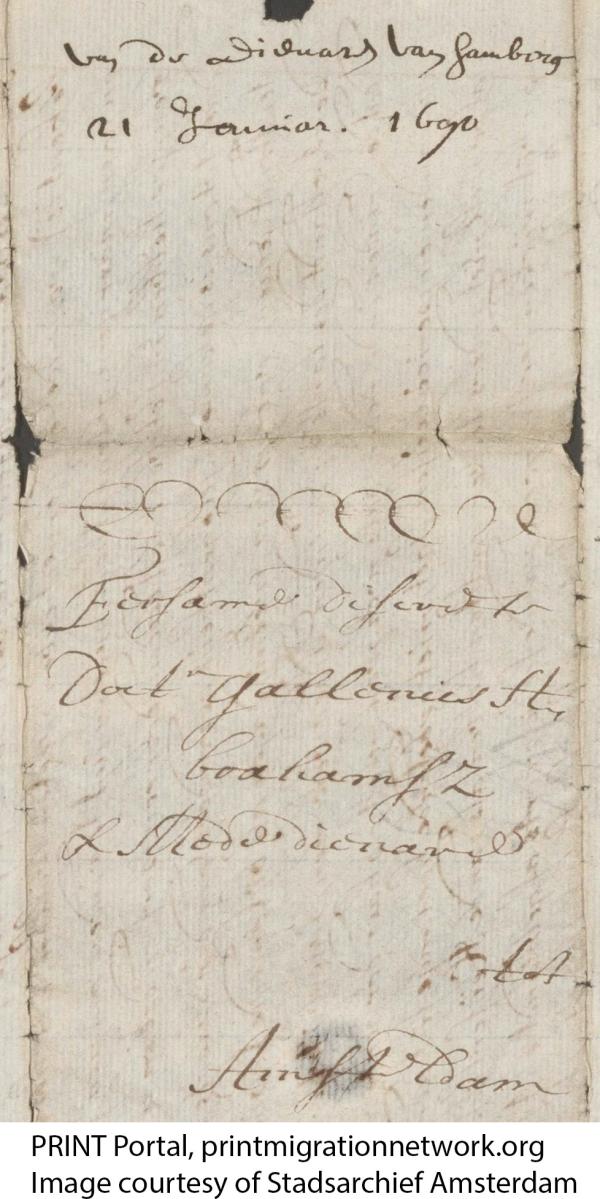 van de Dienars van Hamborg
21 Januar. 1690
Eersame discrete
Doctr Gallenius
& Mede dienares
tot
Amsterdam
PRINT Portal, printmigrationnetwork.org
Image courtesy of Stadsarchief Amsterdam